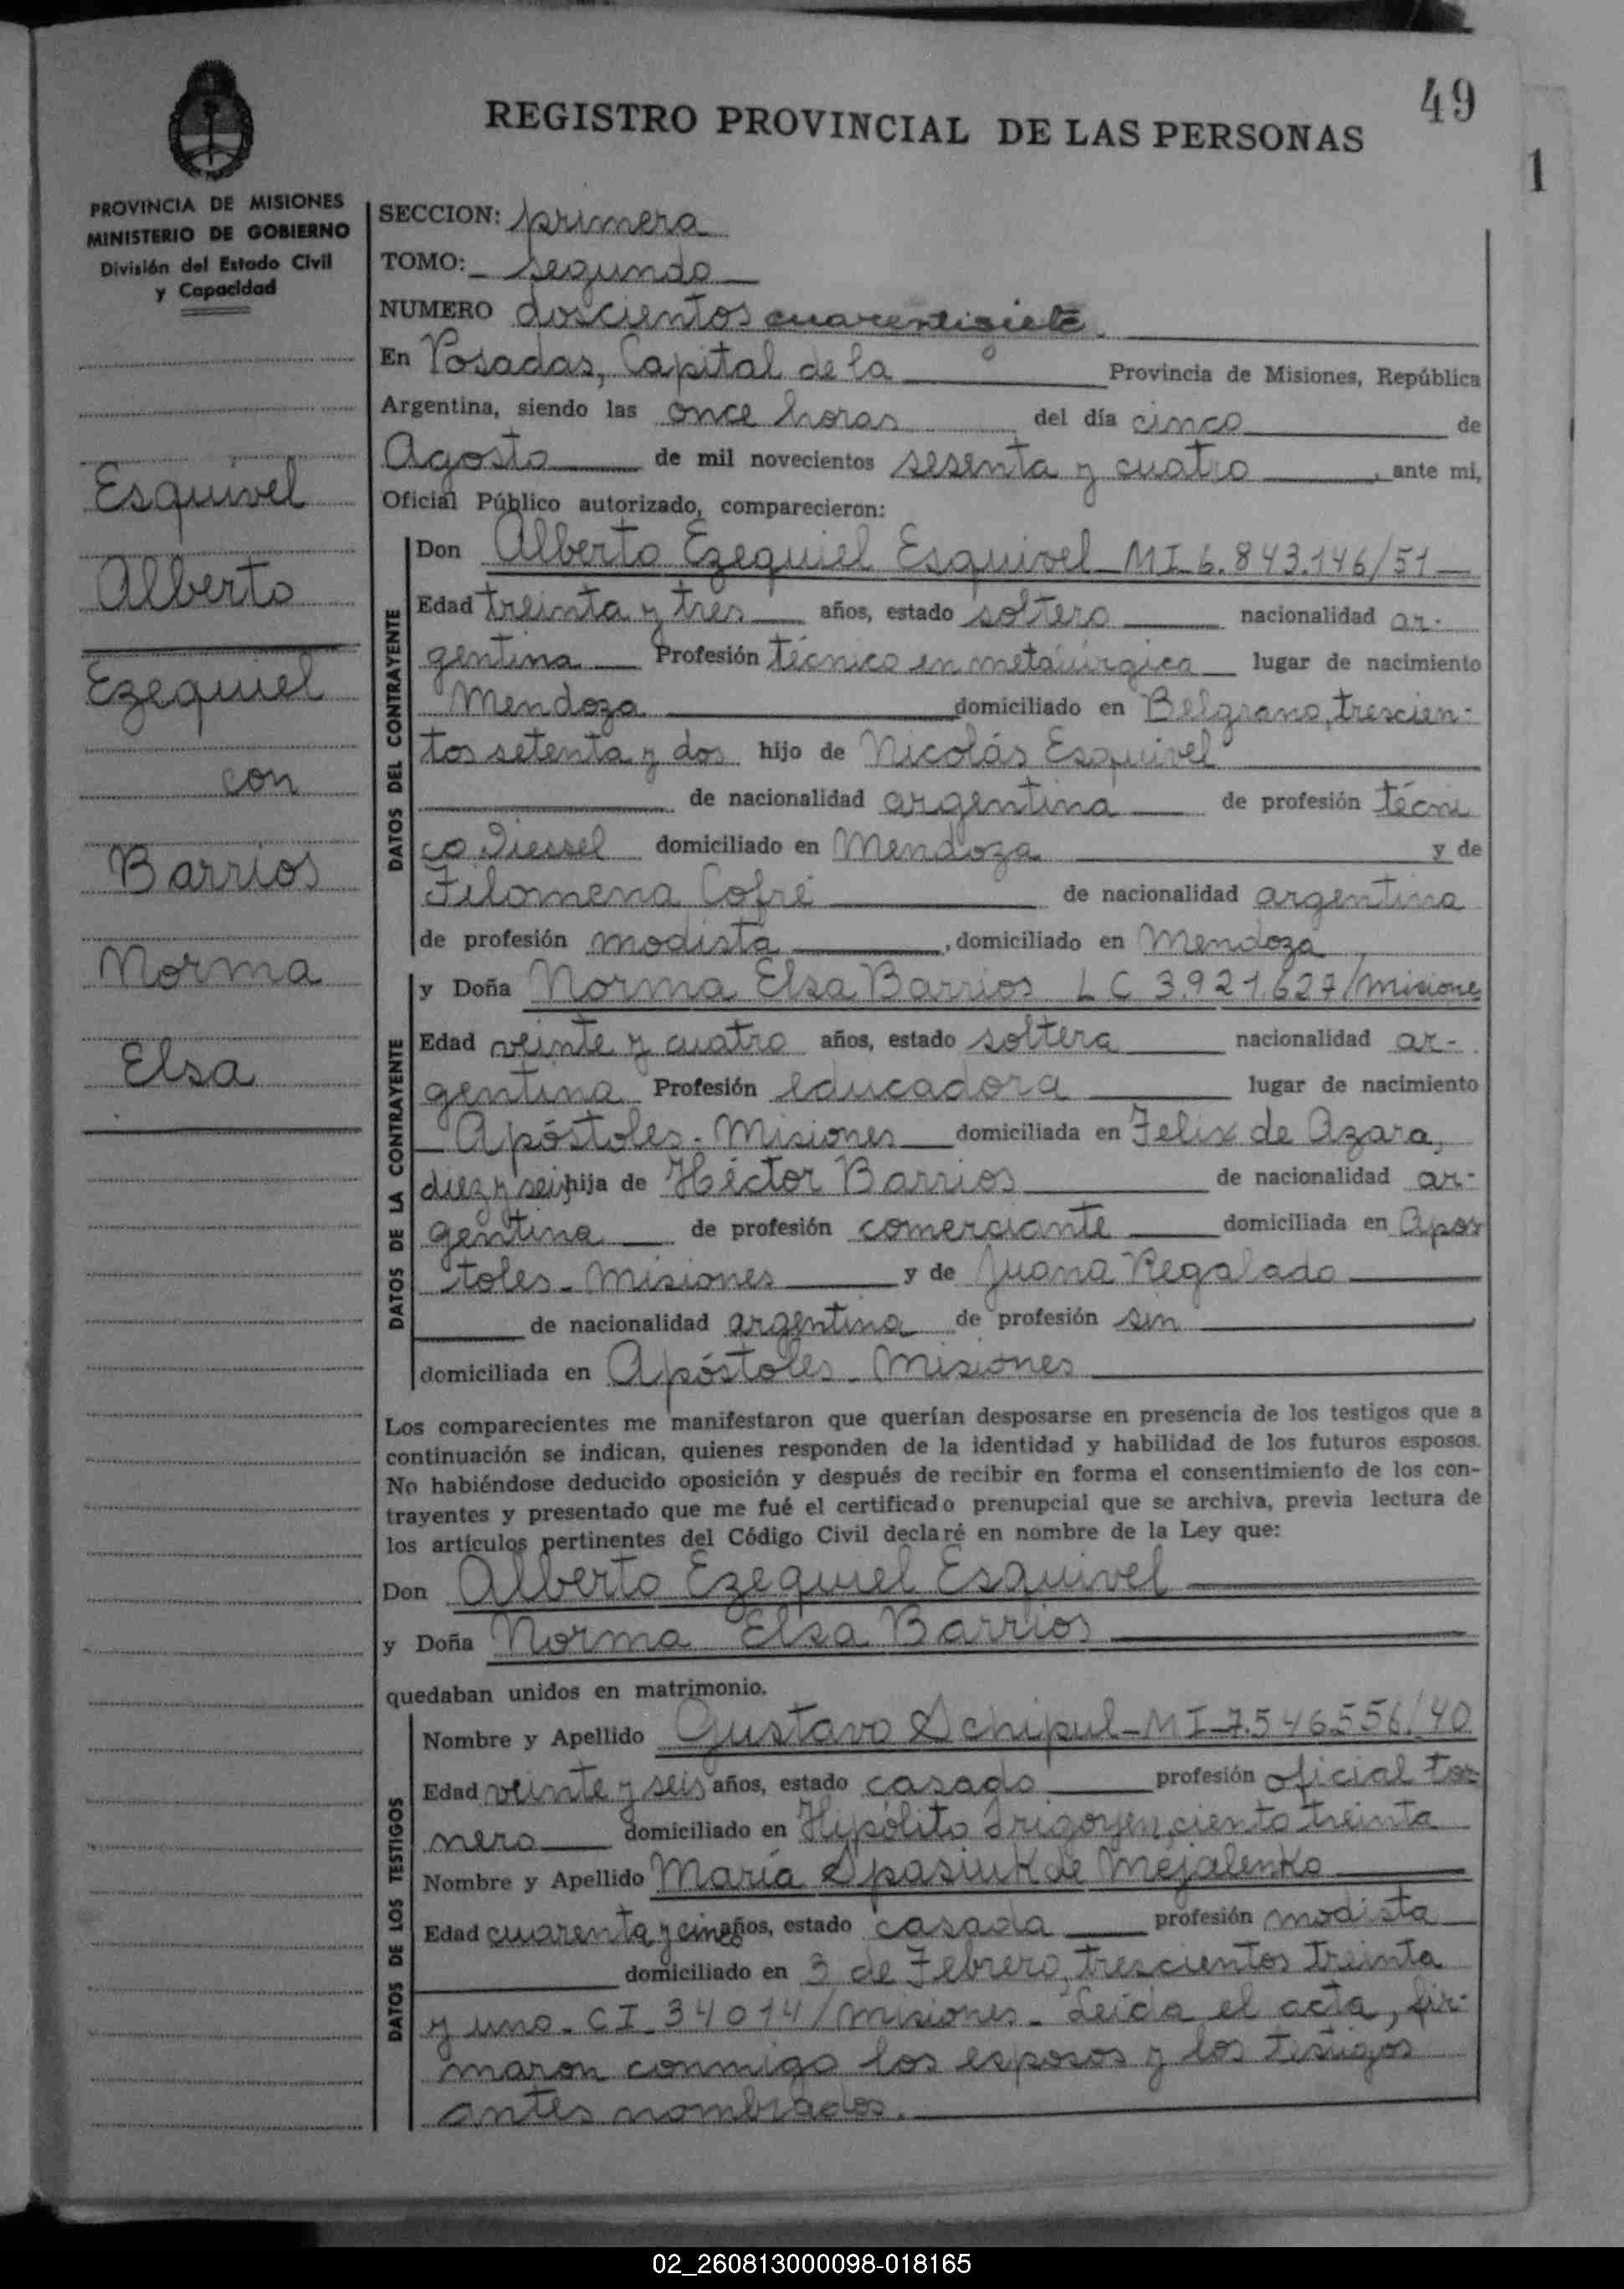 49
REGISTRO PROVINCIAL DE LAS PERSONAS
1
PROVINCIA DE MISIONES
MINISTERIO DE GOBIERNO
División del Estado Civil
y Capacidad
Esquivel
Alberto
Ezequiel
con
Barrios
Norma
Elsa
SECCION: primera
TOMO: segundo
NUMERO doscientos cuarentisiete
En Posadas, Capital de la Provincia de Misiones, República
Argentina, siendo las once horas del día cinco de
Agosto de mil novecientos sesenta y cuatro, ante mi,
Oficial Público autorizado, comparecieron:
DATOS DEL CONTRAYENTE
Don Alberto Ezequiel Esquivel MI 6.843.146/51
Edad treinta y tres años, estado soltero nacionalidad ar-
gentina Profesión técnico en metalúrgica lugar de nacimiento
Mendoza domiciliado en Belgrano, trescien-
tos setenta y dos hijo de Nicolás Esquivel
de nacionalidad argentina de profesión técni
co Diessel domiciliado en Mendoza y de
Filomena Cofré de nacionalidad argentina
de profesión modista, domiciliado en Mendoza
DATOS DE LA CONTRAYENTE
y Doña Norma Elsa Barrios LC 3.921.627/Misiones
Edad veinte y cuatro años, estado soltera nacionalidad ar-
gentina Profesión educadora lugar de nacimiento
Apóstoles - Misiones domiciliada en Felix de Azara,
diez y seis hija de Héctor Barrios de nacionalidad ar-
gentina de profesión comerciante domiciliada en Apos
toles - Misiones y de Juana Regalado
de nacionalidad argentina de profesión sin
domiciliada en Apóstoles - Misiones
Los comparecientes me manifestaron que querían desposarse en presencia de los testigos que a
continuación se indican, quienes responden de la identidad y habilidad de los futuros esposos.
No habiéndose deducido oposición y después de recibir en forma el consentimiento de los con-
trayentes y presentado que me fué el certificado prenupcial que se archiva, previa lectura de
los artículos pertinentes del Código Civil declaré en nombre de la Ley que:
Don Alberto Ezequiel Esquivel
y Doña Norma Elsa Barrios
quedaban unidos en matrimonio.
DATOS DE LOS TESTIGOS
Nombre y Apellido Gustavo Schipul - MI - 7.546.556/40
Edad veinte y seis años, estado casado profesión oficial tor-
nero domiciliado en Hipólito Irigoyen, ciento treinta
Nombre y Apellido María Spasiuk de Mejalenko
Edad cuarenta y cinco años, estado casada profesión modista
domiciliado en 3 de Febrero, trescientos treinta
y uno - CI 34014/Misiones - Leída el acta, fir-
maron conmigo los esposos y los testigos
antes nombrados.
02_260813000098-018165